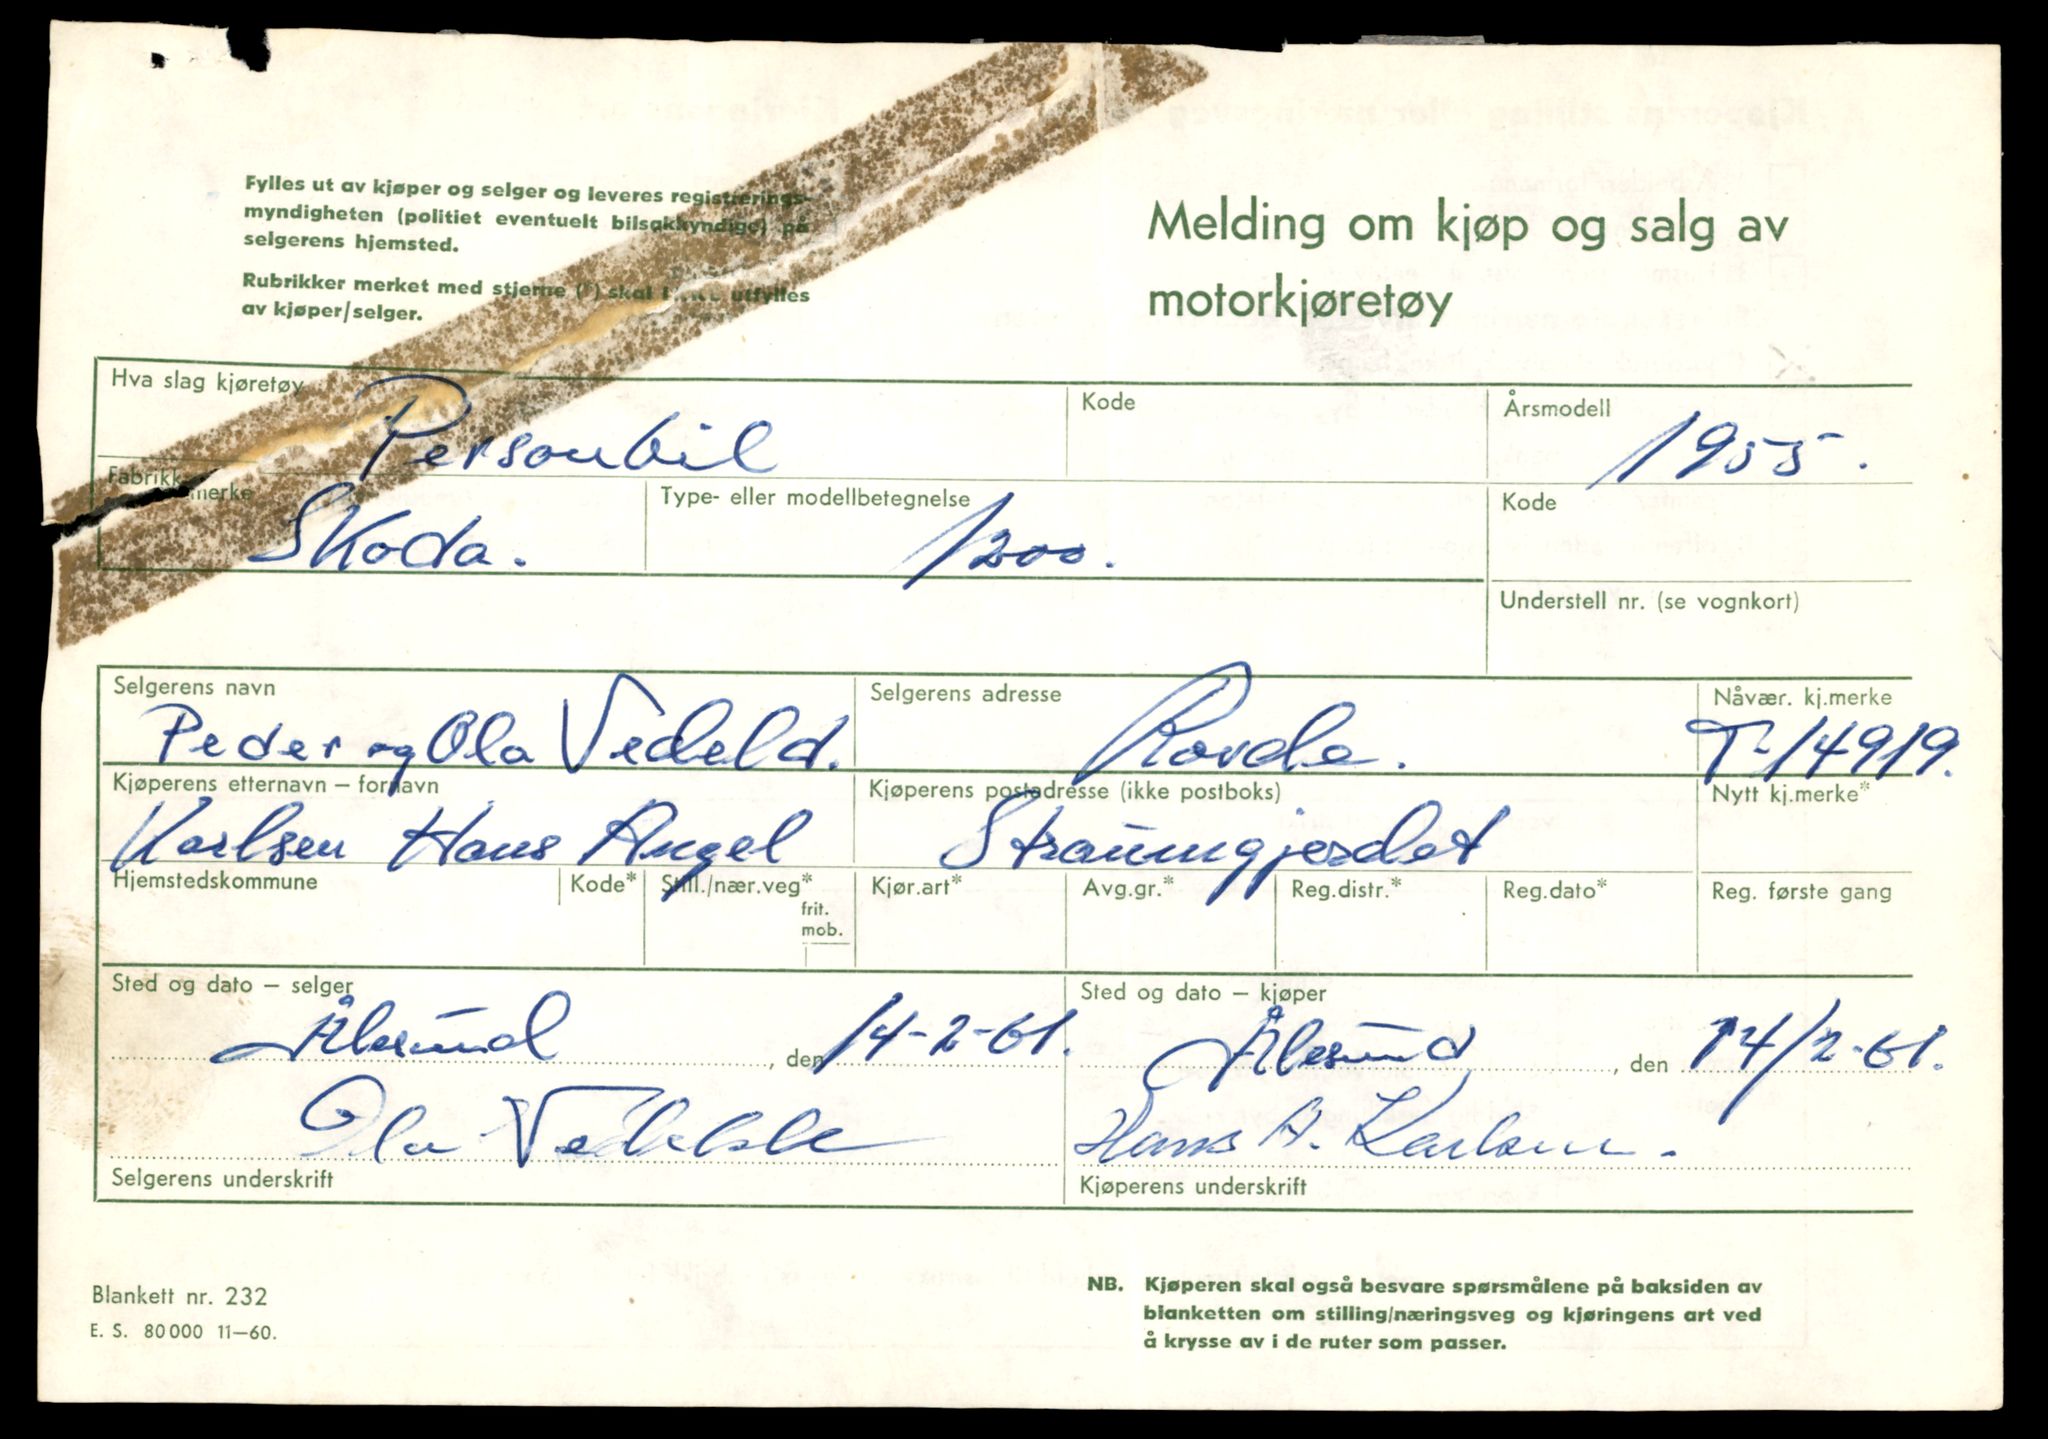 Fylles ut av kjøper og selger og leveres registrerings-
myndigheten (politiet eventuelt bilsakkyndige) på
selgerens hjemsted.
Rubrikker merket med stjerne (*) skal IKKE utfylles
av kjøper/selger.
Melding om kjøp og salg av
motorkjøretøy
Hva slag kjøretøy
Personbil
Kode
Årsmodell
1955.
Fabrikkmerke
Skoda.
Type- eller modellbetegnelse
1200.
Kode
Understell nr. (se vognkort)
Selgerens navn
Peder og Ola Vedeld.
Selgerens adresse
Rovde.
Nåvær. kj.merke
T-14919.
Kjøperens etternavn – fornavn
Karlsen Hans Angel
Kjøperens postadresse (ikke postboks)
Straumgjerdet
Nytt kj.merke*
Hjemstedskommune
Kode*
Still./nær.veg*
frit.
mob.
Kjør.art*
Avg.gr.*
Reg.distr.*
Reg.dato*
Reg. første gang
Sted og dato – selger
Ålesund, den 14-2-61.
Ola Vedeld
Selgerens underskrift
Sted og dato – kjøper
Ålesund, den 14/2-61.
Hans A. Karlsen.
Kjøperens underskrift
Blankett nr. 232
E. S. 80000 11–60.
NB. Kjøperen skal også besvare spørsmålene på baksiden av
blanketten om stilling/næringsveg og kjøringens art ved
å krysse av i de ruter som passer.